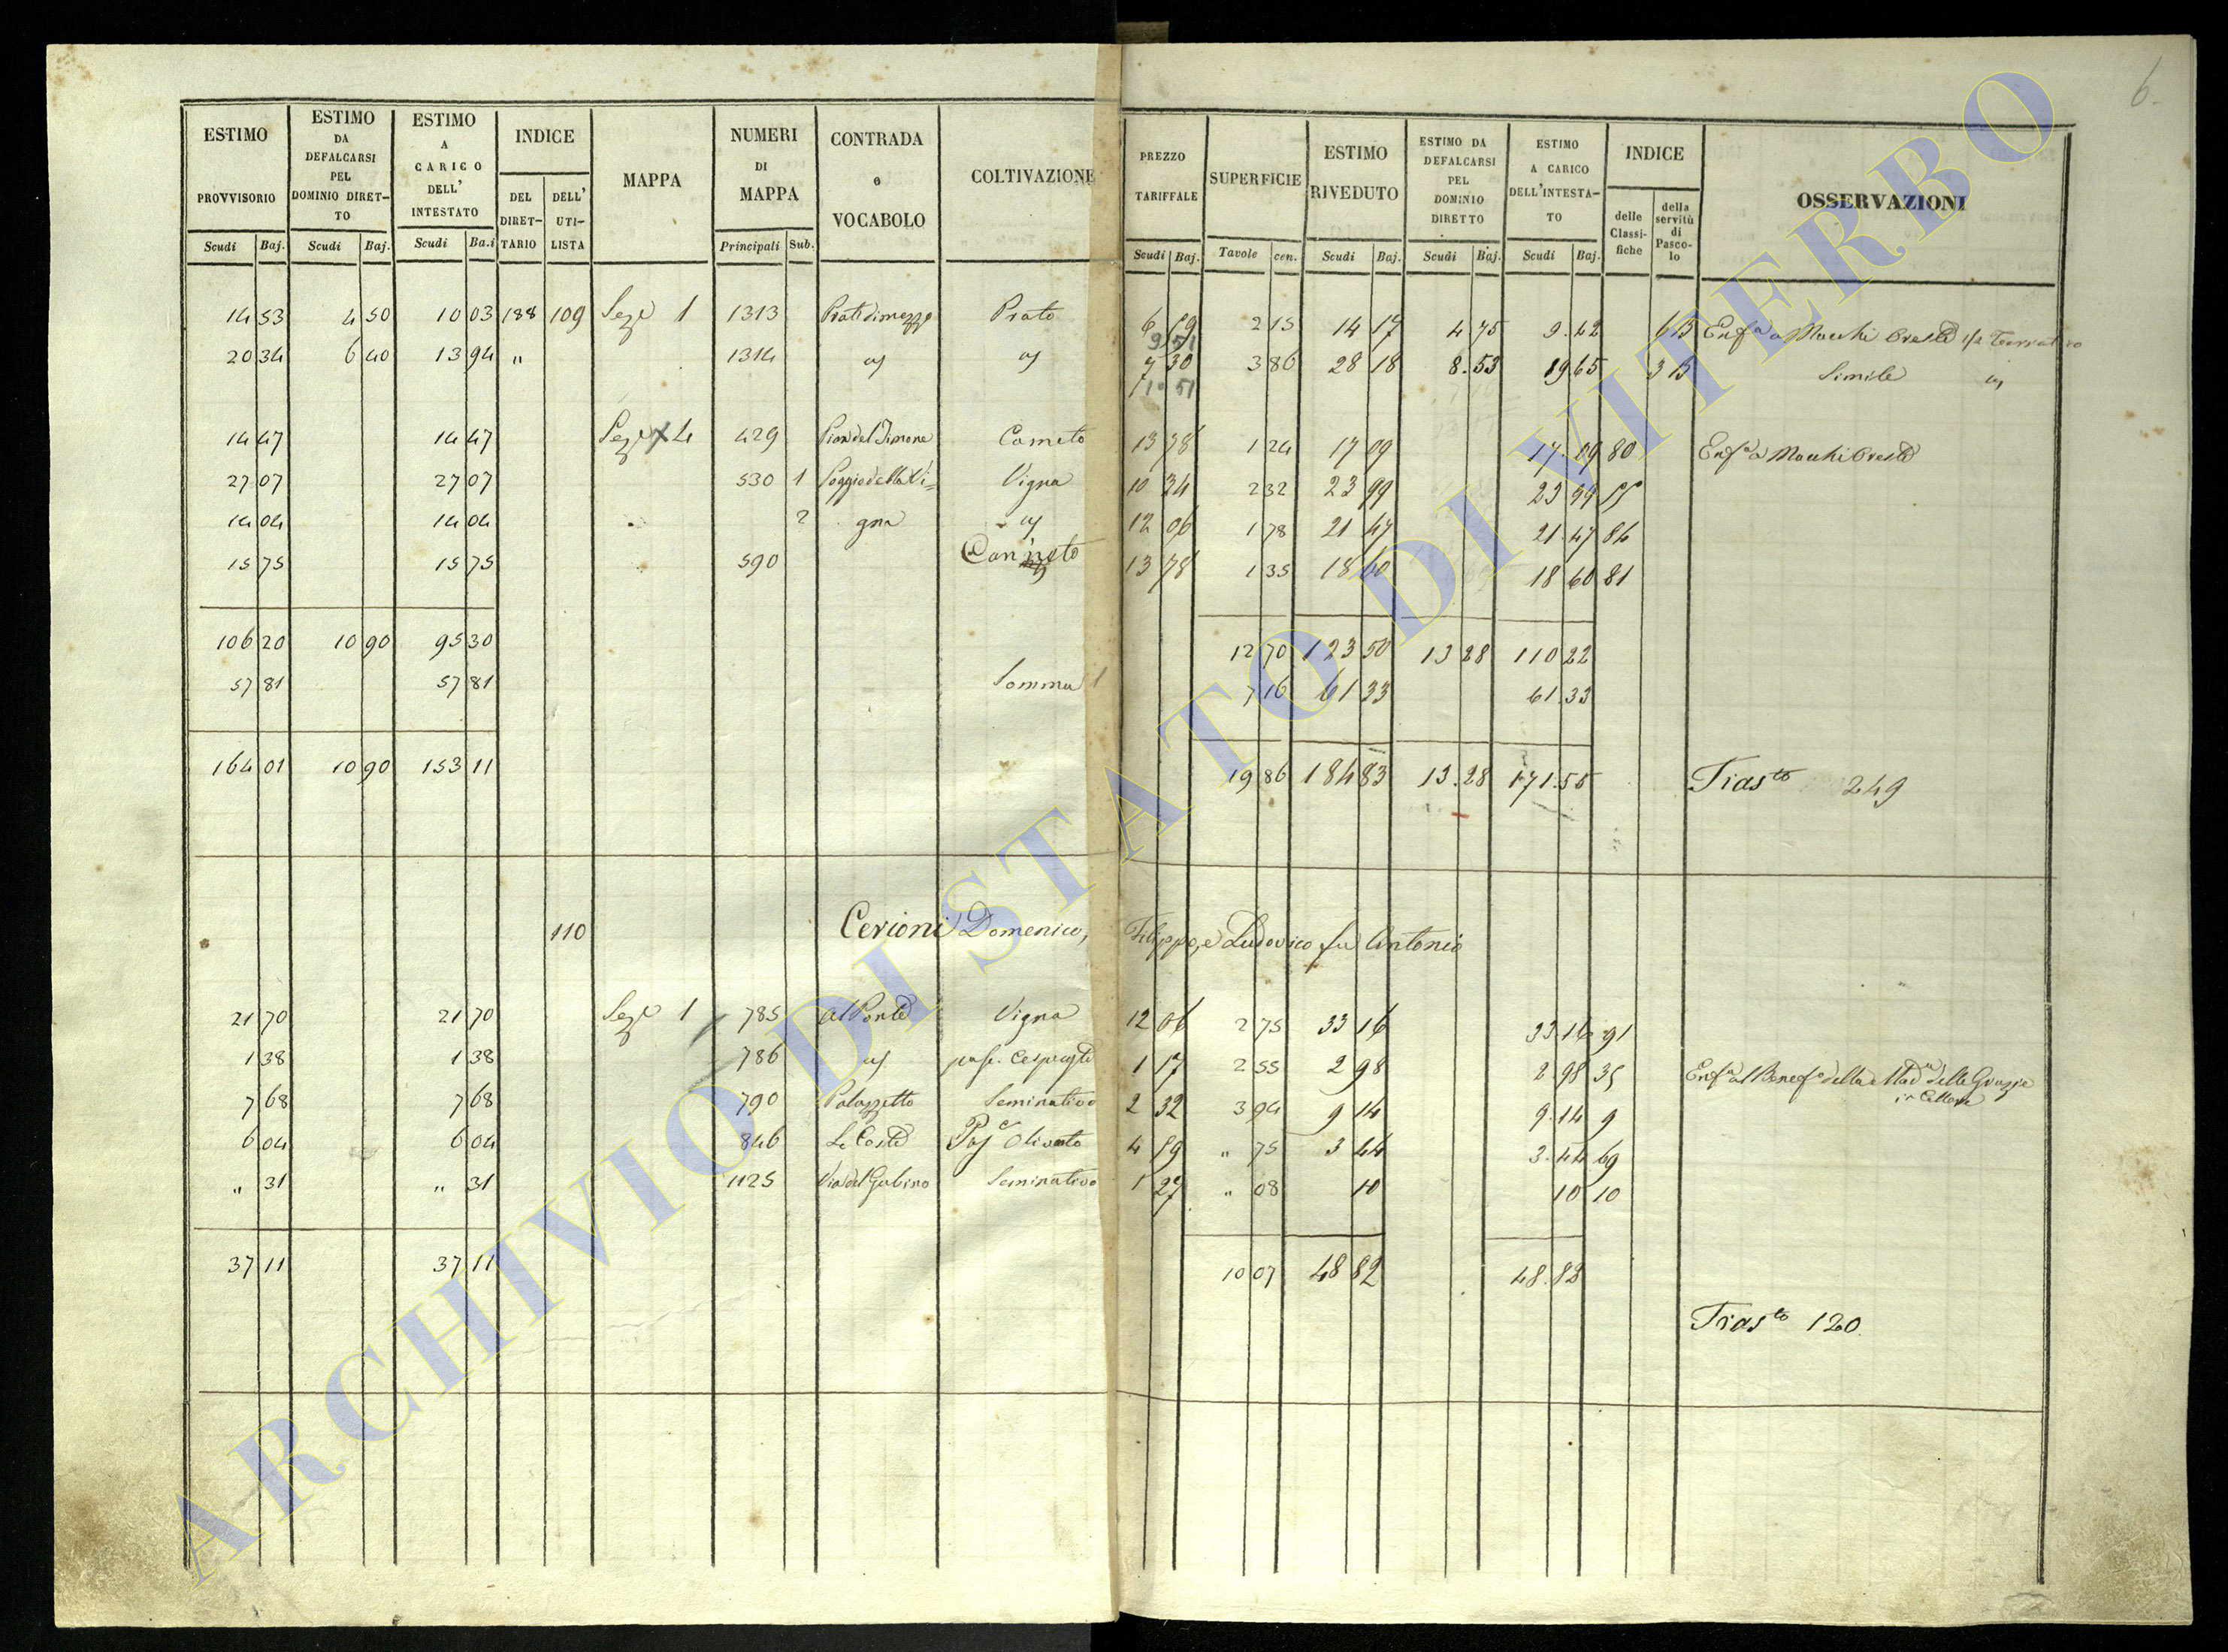 6.
ESTIMO PROVVISORIO Scudi Baj. | ESTIMO DA DEFALCARSI PEL DOMINIO DIRET-TO Scudi Baj. | ESTIMO A CARICO DELL' INTESTATO Scudi Ba.i | INDICE DEL DIRET-TARIO DELL' UTI-LISTA | MAPPA | NUMERI DI MAPPA Principali Sub. | CONTRADA o VOCABOLO | COLTIVAZIONE | PREZZO TARIFFALE Scudi Baj. | SUPERFICIE Tavole cen. | ESTIMO RIVEDUTO Scudi Baj. | ESTIMO DA DEFALCARSI PEL DOMINIO DIRETTO Scudi Baj. | ESTIMO A CARICO DELL'INTESTA-TO Scudi Baj. | INDICE delle Classi-fiche della servitù di Pasco-lo | OSSERVAZIONI
14 53 4 50 10 03 188 109 Seze 1 1313 Prati di mezzo Prato 6 59 2 15 14 17 4 75 9.42 6 B Enfa a Macchi Oreste
9 51
20 34 6 40 13 94 " 1314 3 86 28 18 8.53 19 65 3 B Simile
7 30
14 47 14 47 Seze 4 429 Pian del Timone Caneto 13 78 1 24 17 09 17.09 80 Enfa a Macchi Oreste
27 07 27 07 530 1 Poggio della Vi= Vigna 10 34 2 32 23 99 23 99
14 04 14 04 2 gna 12 06 1 78 21 47 21.47 84
15 75 15 75 590 Canneto 13 78 1 35 18 60 18 60 81
106 20 10 90 95 30 12 70 123 50 13 28 110 22
57 81 57 81 Somma 7 16 61 33 61.33
164 01 10 90 153 11 19 86 184 83 13.28 171.55 Trasto 249
110 Cerioni Domenico, Filippo, e Ludovico fu Antonio
21 70 21 70 Seze 1 785 Al Ponte Vigna 12 06 2 75 33 16 33.16 91
1 38 1 38 786 1 17 2 55 2 98 2 98 35 Enfa al Benefo della Mada delle Grazie
in Cellere
7 68 7 68 790 Palazzetto Seminativo 2 32 3 94 9 14 9.14 9
6 04 6 04 846 Le Coste Olivato 4 59 " 75 3 44 3.44 69
" 31 " 31 1125 Via del Gabino Seminativo 1 27 " 08 10 10 10
37 11 37 11 10 07 48 82 48.82
Trasto 120
ARCHIVIO DI STATO DI VITERBO